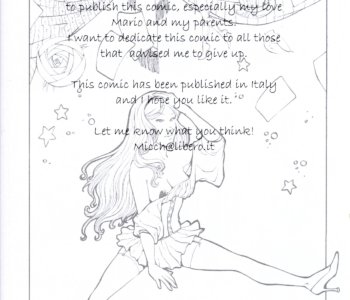 to publish this comic, especially my love
Mario and my parents.
I want to dedicate this comic to all those
that advised me to give up.
This comic has been published in Italy
and I hope you like it.
Let me know what you think!
Micch@libero.it